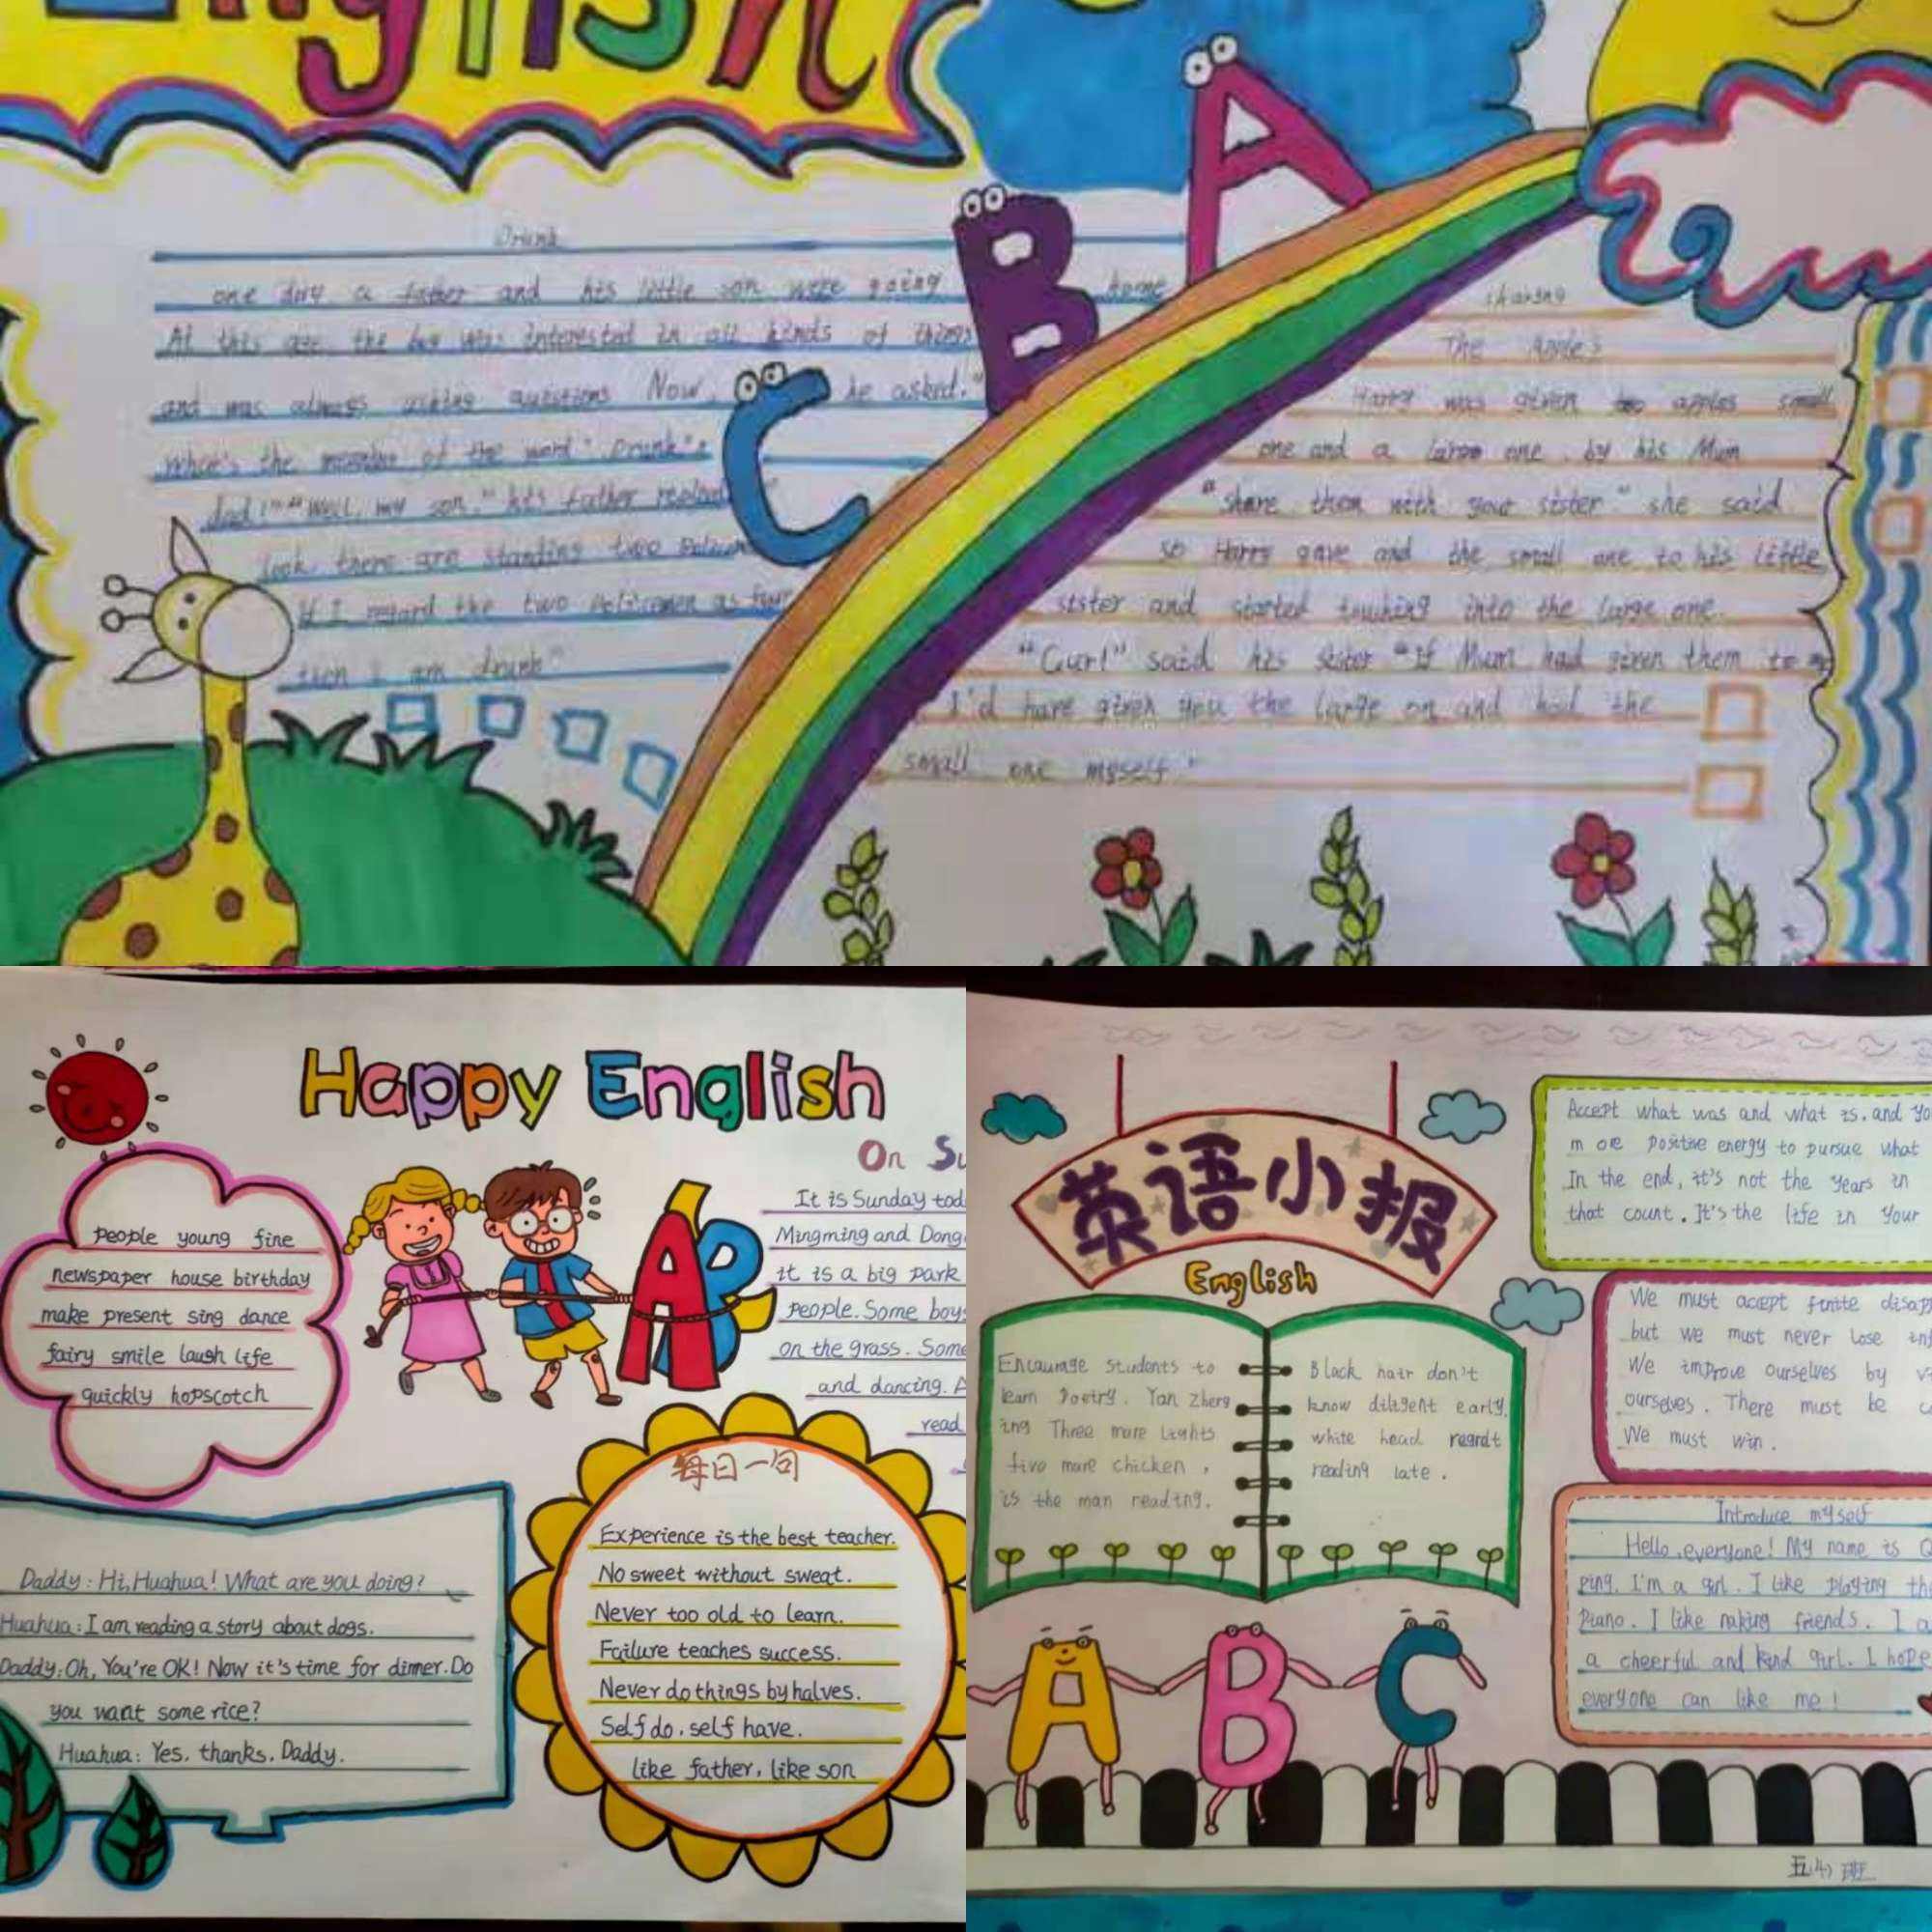 English
A
B
C
Drunk
one day a father and his little son were going home
At this age the boy was interested in all kinds of things
and was always asking questions Now, he asked."
the meaning of the word " Drunk"
dad!" "Well, my son," his father
look there are standing two
If I regard the two policemen as four
then I am drunk"
sharing
The Apples
Harry was given two apples small
one and a large one by his Mum
"share them with your sister." she said
so Harry gave and the small one to his little
sister and started touching into the large one.
"Cur!" said his sister "If Mum had given them to
I'd have given you the large on and had the
small one myself."
Happy English
people young fine
newspaper house birthday
make present sing dance
fairy smile laugh life
quickly hopscotch
AB
On Su
It is Sunday tod
Mingming and Dong
it is a big park
people. Some boys
on the grass. Some
and dancing. A
read
Daddy: Hi, Huahua! What are you doing?
Huahua: I am reading a story about dogs.
Daddy: Oh, You're OK! Now it's time for dinner. Do
you want some rice?
Huahua: Yes, thanks, Daddy.
每日一句
Experience is the best teacher.
No sweet without sweat.
Never too old to learn.
Failure teaches success.
Never do things by halves.
Self do, self have.
like father, like son
英语小报
English
Encourage students to
learn Poetry. Yan Zheng
ing Three more Lights
five more chicken,
is the man reading.
Black hair don't
know diligent early,
white head regret
reading late.
Accept what was and what is, and yo
more positive energy to pursue what
In the end, it's not the years in
that count. It's the life in your
We must accept finite disapp
but we must never lose inf
We improve ourselves by vi
ourselves. There must be c
We must win.
Introduce myself
Hello, everyone! My name is Q
ping. I'm a girl. I like playing the
Piano. I like making friends. I a
a cheerful and kind girl. I hope
everyone can like me!
A B C
班